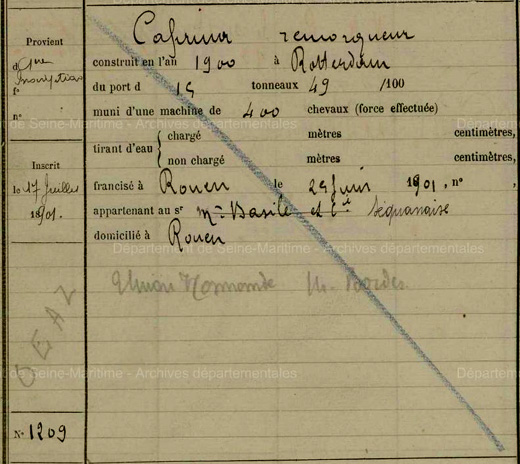 Provient
d 1ère
Inscription
f°
n°
Inscrit
le 17 Juillet
1901.
N° 1209
remorqueur
construit en l'an 1900 à Rotterdam
du port d 15 tonneaux 49 /100
muni d'une machine de 400 chevaux (force effectuée)
tirant d'eau { chargé mètres centimètres,
non chargé mètres centimètres,
francisé à Rouen le 29 Juin 1901, n° ,
appartenant au sr Mr Basile et Cie Séquanaise
domicilié à Rouen
Union Normande
de Seine-Maritime - Archives départementales
Département de Seine-Maritime - Archives départementales
de Seine-Maritime - Archives départementales